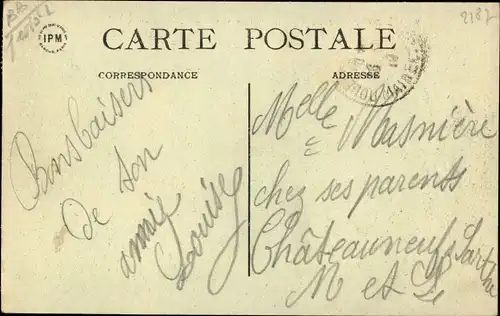 IPM
2187
CARTE POSTALE
CORRESPONDANCE
ADRESSE
Bons baisers
de ton
amie
Louise
Melle Masnière
chez ses parents
Châteauneuf s Sarthe
M et L